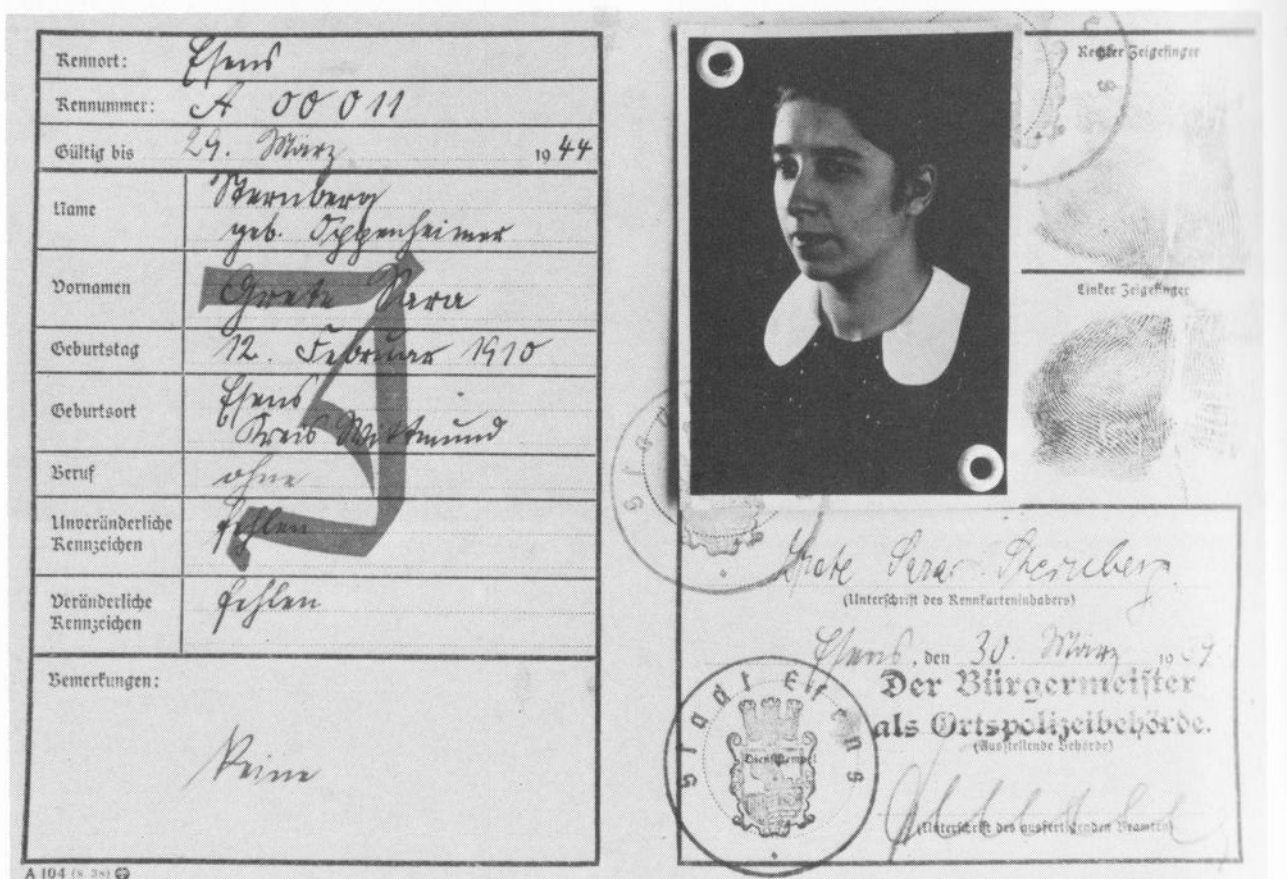 Kennort: Esens
Kennummer: A 00011
Gültig bis 29. März 1944
Name Sternberg
geb. Oppenheimer
Vornamen Grete Sara
Geburtstag 12. Februar 1910
Geburtsort Esens
Kreis Wittmund
Beruf ohne
Unveränderliche Kennzeichen fehlen
Veränderliche Kennzeichen fehlen
Bemerkungen:
Keine
J
A 104 (8. 38)
Rechter Zeigefinger
Linker Zeigefinger
Grete Sara Sternberg
(Unterschrift des Kennkarteninhabers)
Esens, den 30. März 1939
Der Bürgermeister
als Ortspolizeibehörde.
(Ausstellende Behörde)
(Unterschrift des ausfertigenden Beamten)
Stadt Esens
Dienststempel